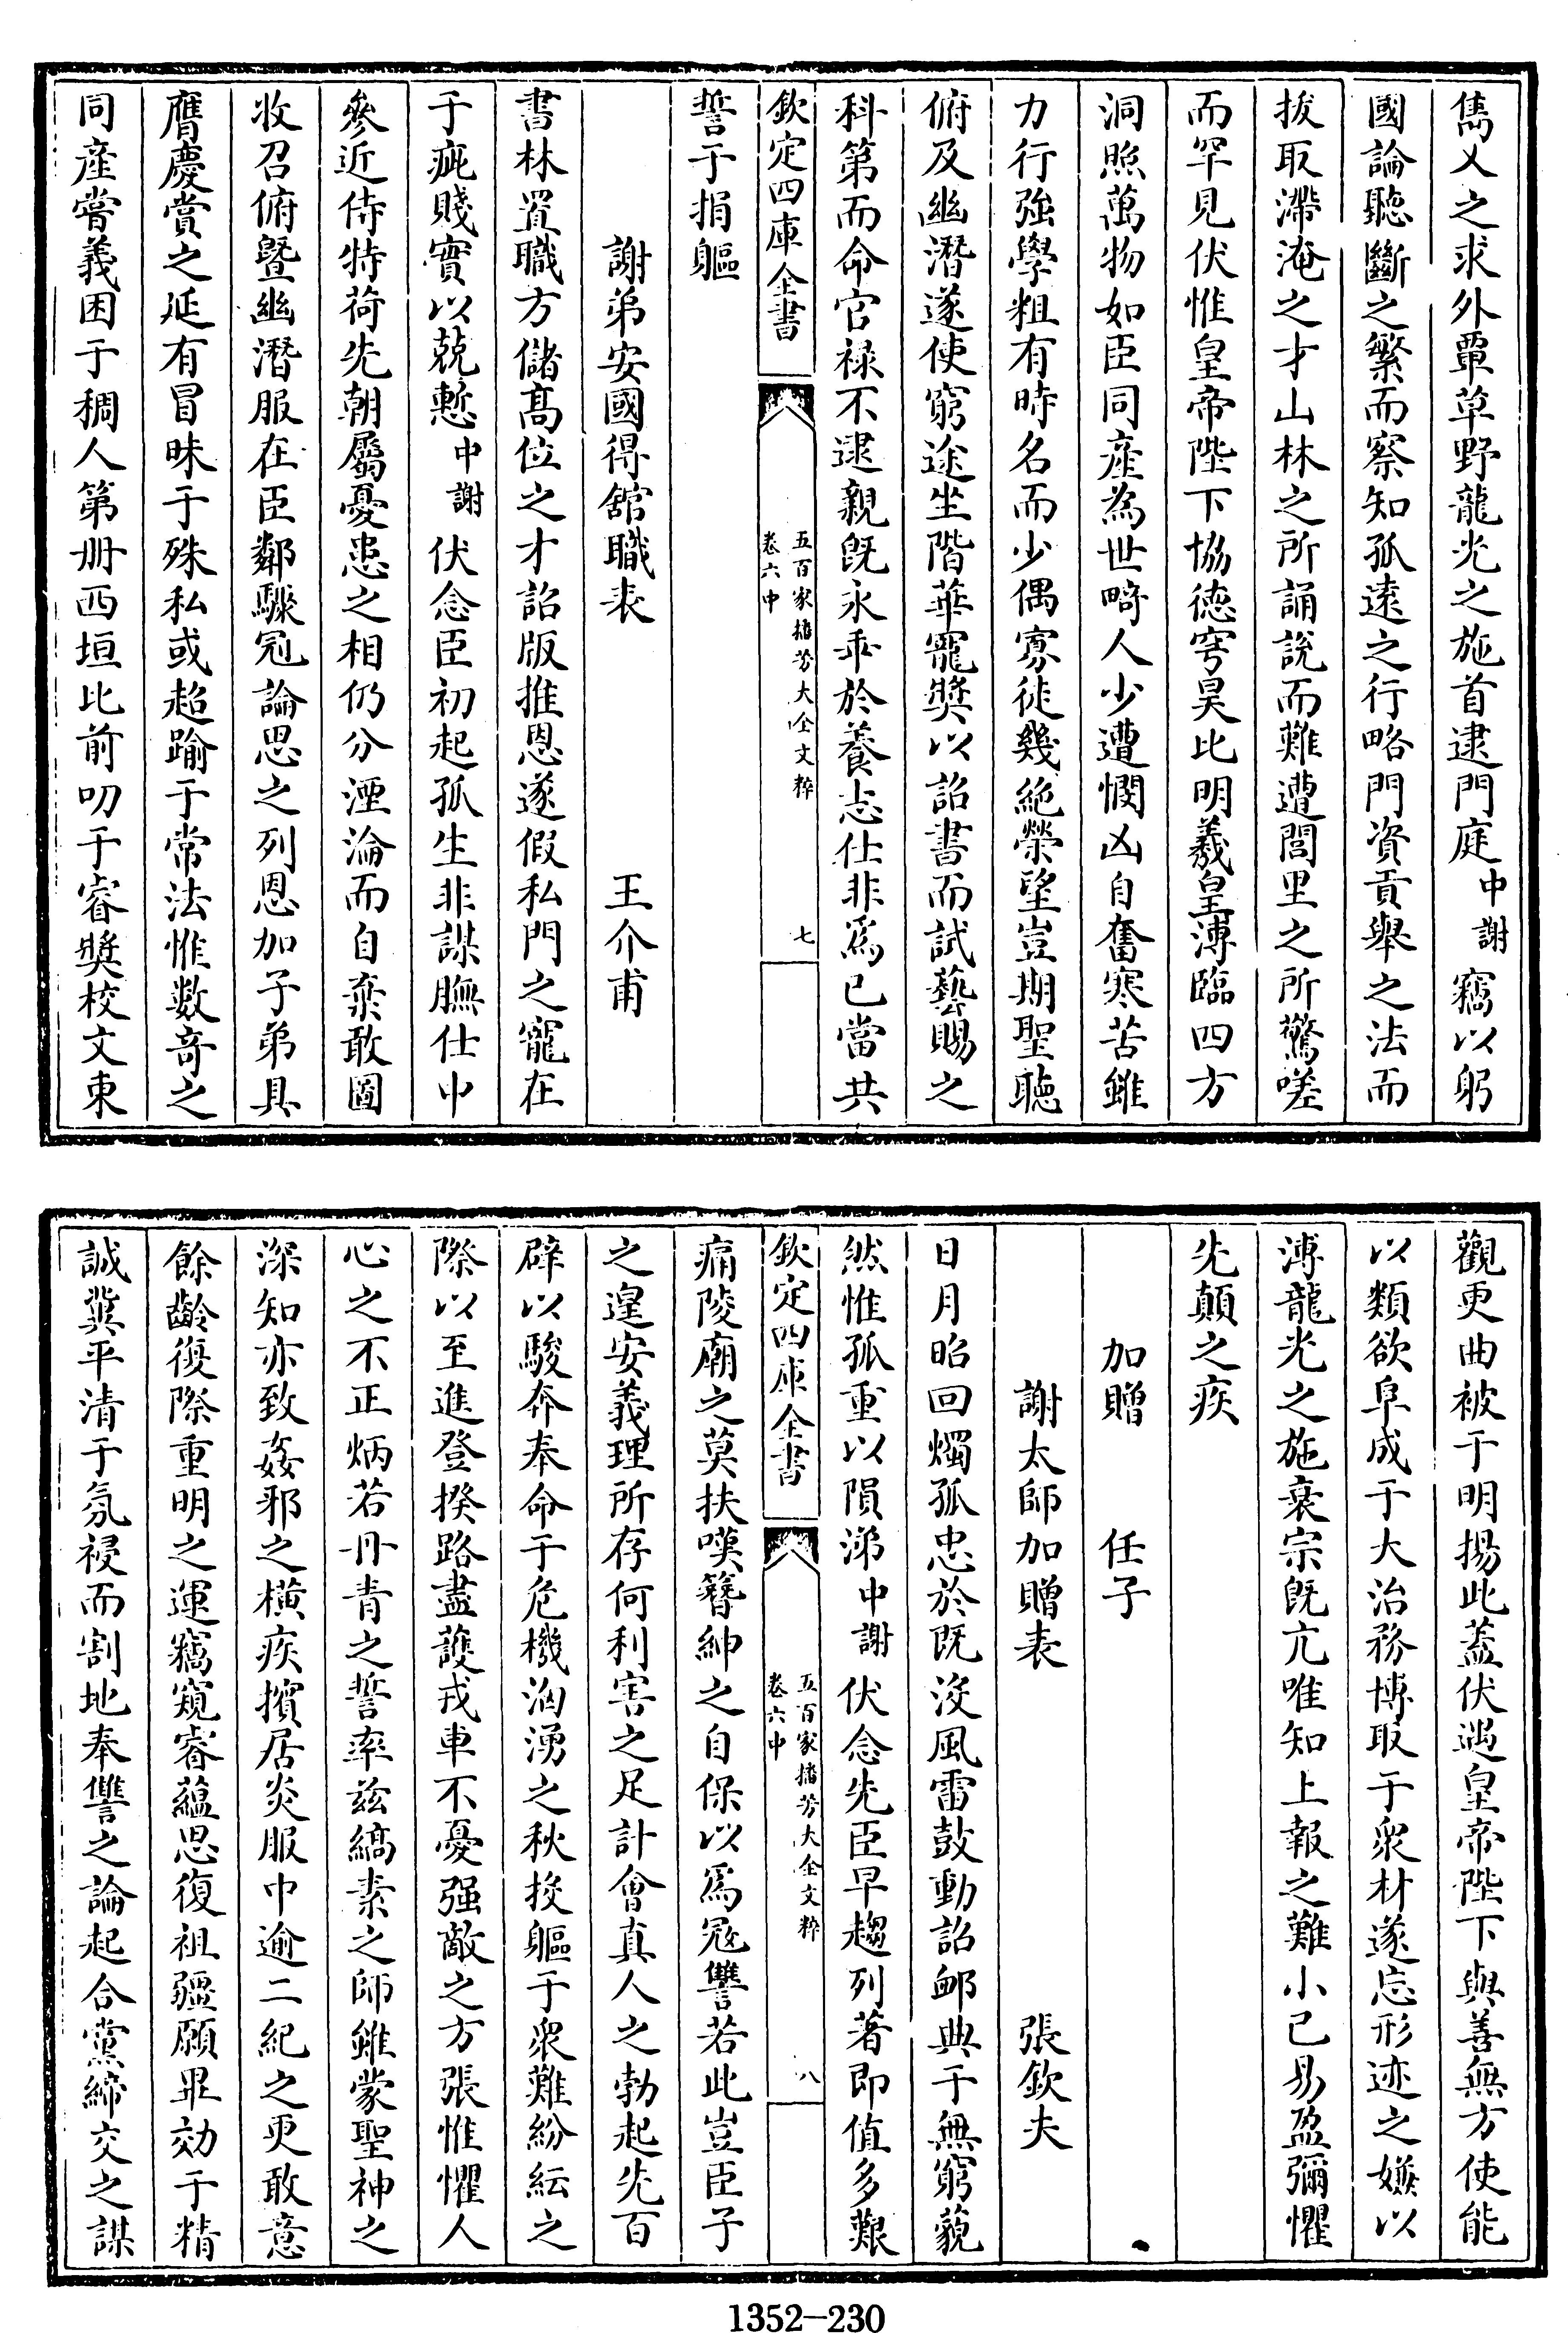 雋乂之求外覃草野龍光之施首逮門庭中謝竊以躬
國論聽斷之繁而察知孤遠之行略門資貢舉之法而
拔取滯淹之才山林之所誦説而難遭閭里之所驚嗟
而罕見伏惟皇帝陛下協徳穹昊比明羲皇溥臨四方
洞照萬物如臣同産為世畸人少遭憫凶自奮寒苦雖
力行強學粗有時名而少偶寡徒幾絶榮望豈期聖聽
俯及幽潛遂使窮途坐階華寵奬以詔書而試藝賜之
科第而命官禄不逮親既永乖於養志仕非爲己當共
欽定四庫全書
五百家播芳大全文粹
卷六中
七
誓于捐軀
謝弟安國得舘職表 王介甫
書林置職方儲髙位之才詔版推恩遂假私門之寵在
于疵賤實以兢慙中謝伏念臣初起孤生非謀膴仕中
參近侍特荷先朝屬憂患之相仍分湮淪而自棄敢圖
收召俯曁幽潛服在臣鄰驟冠論思之列恩加子弟具
膺慶賞之延有冒昧于殊私或超踰于常法惟数竒之
同産嘗義困于稠人第册西垣比前叨于睿奬校文東
觀更曲被于明揚此葢伏遇皇帝陛下與善無方使能
以類欲阜成于大治務博取于衆材遂忘形迹之嫌以
溥龍光之施衰宗既亢唯知上報之難小己易盈彌懼
先顛之疾
加贈 任子
謝太師加贈表 張欽夫
日月昭回燭孤忠於既没風雷鼓動詔郵典于無窮藐
然惟孤重以隕涕中謝伏念先臣早趨列著即值多艱
欽定四庫全書
五百家播芳大全文粹
卷六中
八
痛陵廟之莫扶嘆簪紳之自保以爲冦讐若此豈臣子
之遑安義理所存何利害之足計會真人之勃起先百
辟以駿奔奉命于危機洶湧之秋投軀于衆難紛紜之
際以至進登揆路盡䕶戎車不憂强敵之方張惟懼人
心之不正炳若丹青之誓率兹縞素之師雖蒙聖神之
深知亦致姦邪之横疾擯居炎服中逾二紀之更敢意
餘齡復際重明之運竊窺睿藴思復祖疆願畢効于精
誠冀平清于氛祲而割地奉讐之論起合黨締交之謀
1352-230